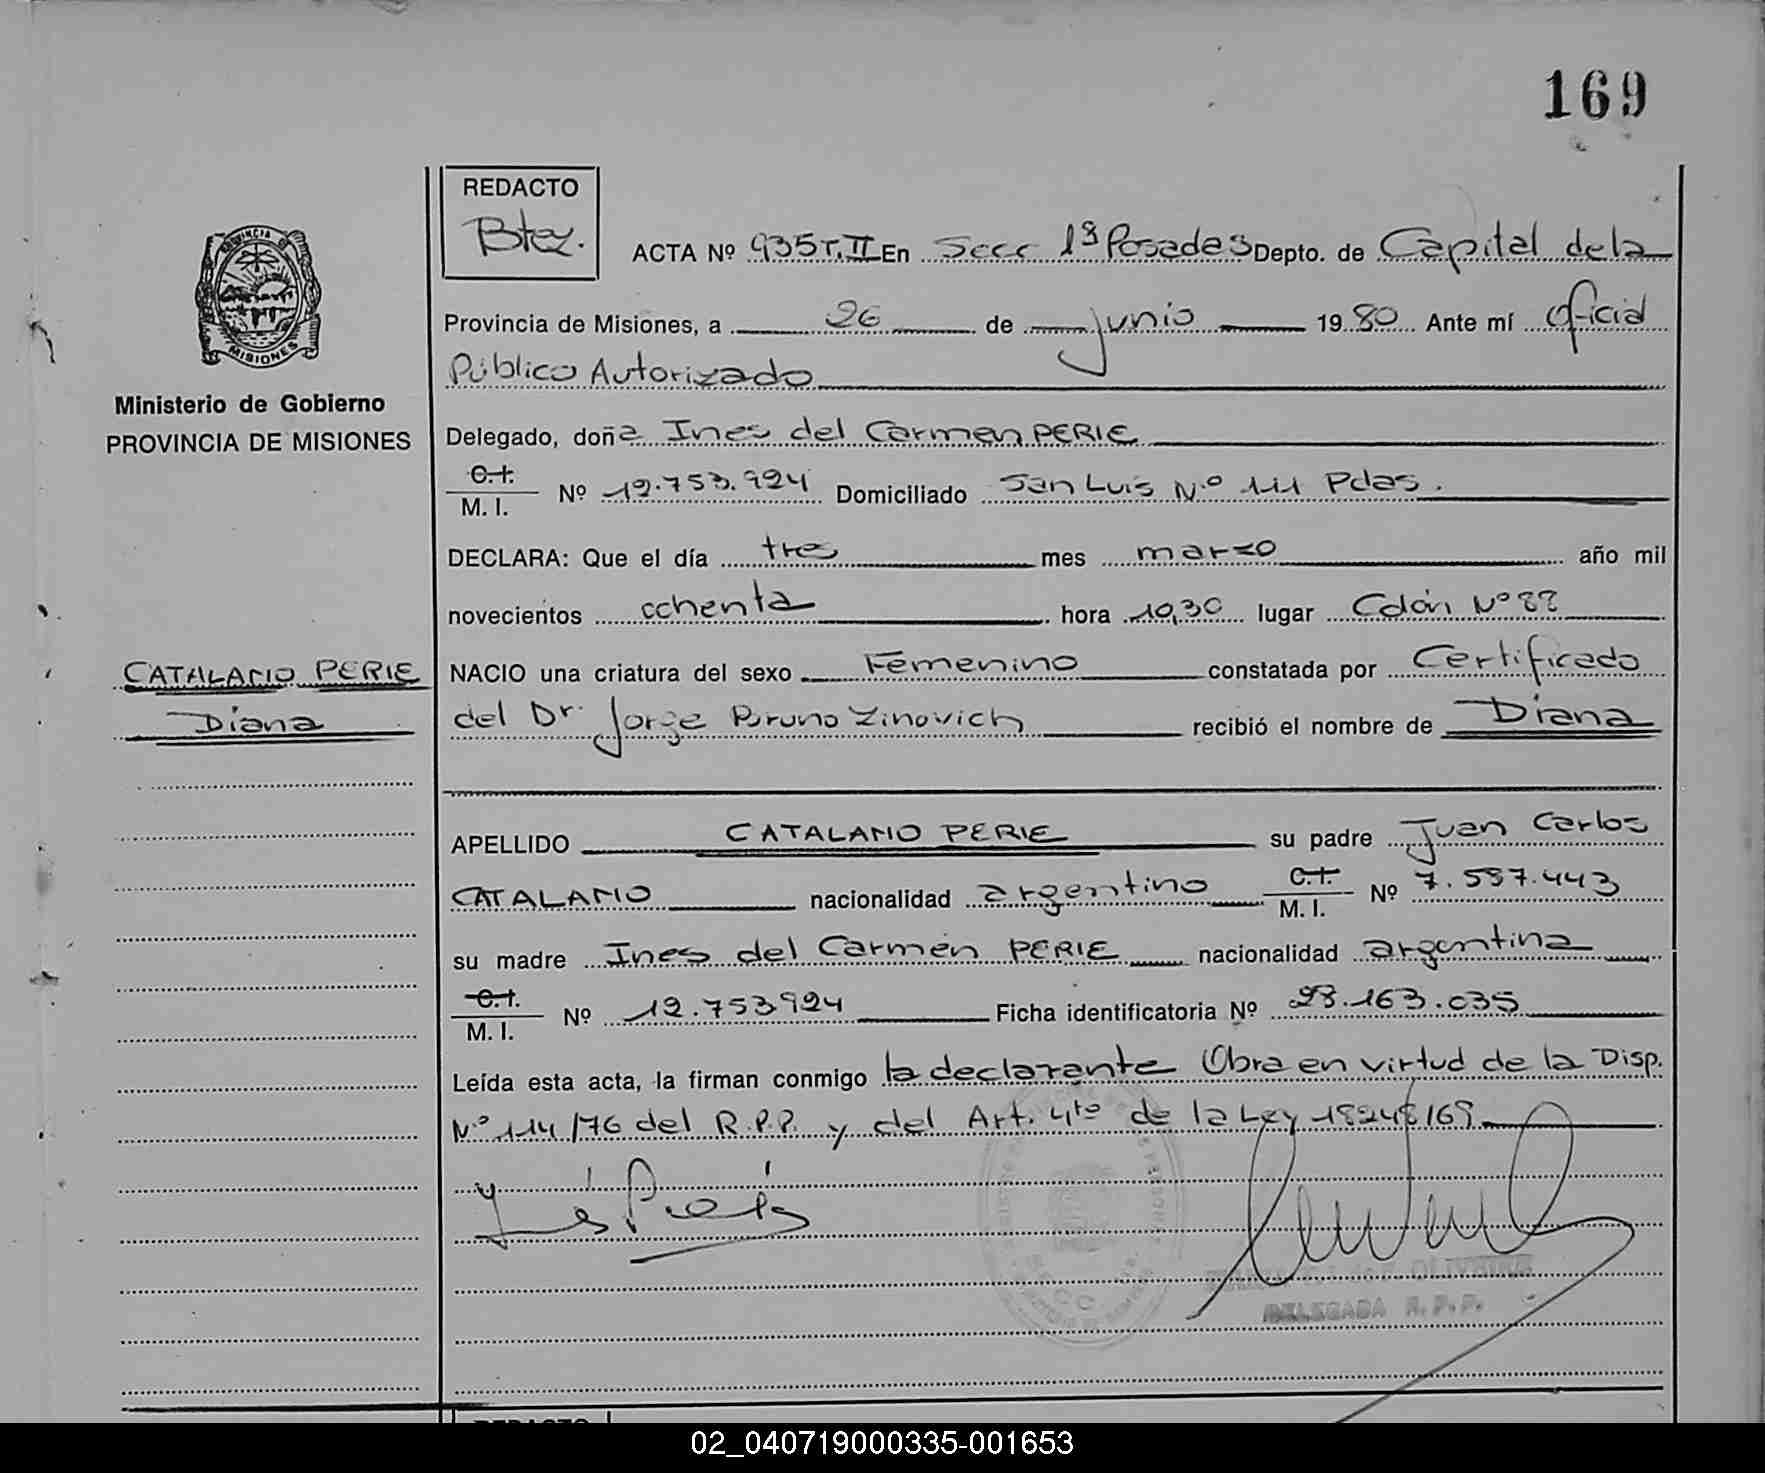 169
REDACTO
Btez.
ACTA Nº 935 T. II En Secc 1ª Posadas Depto. de Capital de la
Provincia de Misiones, a 26 de junio 1980 Ante mí Oficial
Público Autorizado
PROVINCIA DE
MISIONES
Ministerio de Gobierno
PROVINCIA DE MISIONES
Delegado, doña Ines del Carmen PERIE
C.I.
M. I. Nº 12.753.924 Domiciliado San Luis Nº 111 Pdas.
DECLARA: Que el día tres mes marzo año mil
novecientos ochenta hora 10,30 lugar Colón Nº 82
CATALANO PERIE
Diana
NACIO una criatura del sexo Femenino constatada por Certificado
del Dr. Jorge Bruno Zinovich recibió el nombre de Diana
APELLIDO CATALANO PERIE su padre Juan Carlos
CATALANO nacionalidad argentino C.I. M. I. Nº 7.597.443
su madre Ines del Carmen PERIE nacionalidad argentina
C.I.
M. I. Nº 12.753924 Ficha identificatoria Nº 28.163.035
Leída esta acta, la firman conmigo la declarante Obra en virtud de la Disp.
Nº 114/76 del R.P.P. y del Art. 4to de la Ley 18248/69
OLIVEIRA
DELEGADA R.P.P.
REDACTO
02_040719000335-001653